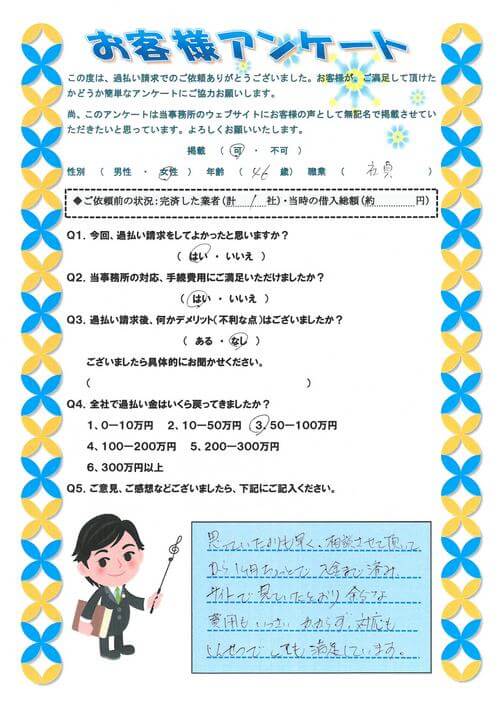 お客様アンケート
この度は、過払い請求でのご依頼ありがとうございました。お客様が、ご満足して頂けた
かどうか簡単なアンケートにご協力お願いします。
尚、このアンケートは当事務所のウェブサイトにお客様の声として無記名で掲載させてい
ただきたいと思っています。よろしくお願いいたします。
掲載 ( 可 ・ 不可 )
性別 ( 男性 ・ 女性 ) 年齢 ( 46 歳) 職業 ( 社員 )
◆ご依頼前の状況:完済した業者(計 1 社)・当時の借入総額(約 円)
Q1. 今回、過払い請求をしてよかったと思いますか?
( はい ・ いいえ )
Q2. 当事務所の対応、手続費用にご満足いただけましたか?
( はい ・ いいえ )
Q3. 過払い請求後、何かデメリット(不利な点)はございましたか?
( ある ・ なし )
ございましたら具体的にお聞かせください。
( )
Q4. 全社で過払い金はいくら戻ってきましたか?
1、0-10万円 2、10-50万円 3、50-100万円
4、100-200万円 5、200-300万円
6、300万円以上
Q5. ご意見、ご感想などございましたら、下記にご記入ください。
思っていたよりも早く、相談させて頂いて
から 1ヶ月ちょっとで 入金まで済み
サイトで見ていたとおり 余分な
費用も いっさい かからず、対応も
しんせつで とても 満足しています。